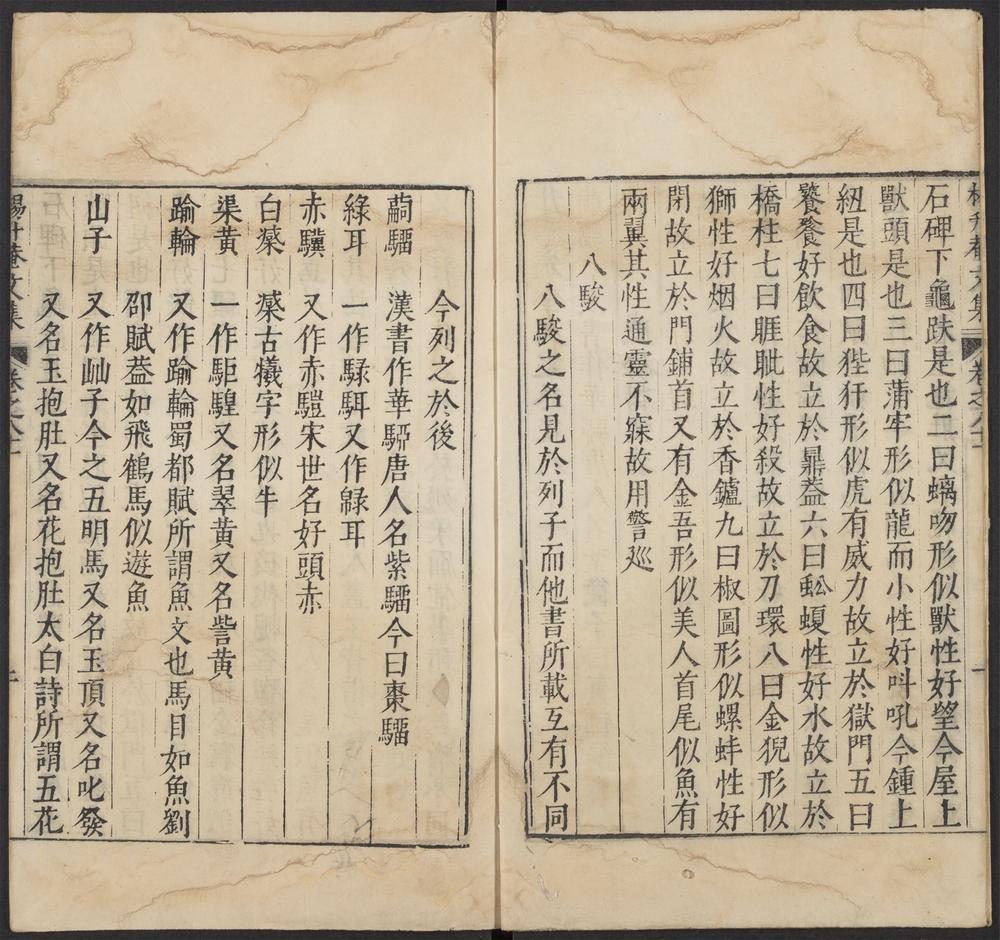 楊升菴文集 卷之八十一
石碑下龜趺是也二曰螭吻形似獸性好望今屋上
獸頭是也三曰蒲牢形似龍而小性好吽吼今鍾上
紐是也四曰狴犴形似虎有威力故立於獄門五曰
饕餮好飲食故立於鼎葢六曰蚣蝮性好水故立於
橋柱七曰睚眦性好殺故立於刀環八曰金猊形似
獅性好烟火故立於香鑪九曰椒圖形似螺蚌性好
閉故立於門鋪首又有金吾形似美人首尾似魚有
兩翼其性通靈不寐故用警廵
八駿
八駿之名見於列子而他書所載互有不同
今列之於後
騧騮 漢書作華騮唐人名紫騮今曰棗騮
綠耳 一作騄駬又作䮸耳
赤驥 又作赤騹宋世名好頭赤
白𣩵 𣩵古犧字形似牛
渠黃 一作駏騜又名翠黃又名訾黃
踰輪 又作踰輪蜀都賦所謂魚文也馬目如魚劉
卲賦葢如飛鶴馬似遊魚
山子 又作屾子今之五明馬又名玉頂又名叱發
又名玉抱肚又名花抱肚太白詩所謂五花
楊升菴文集 卷之八十一